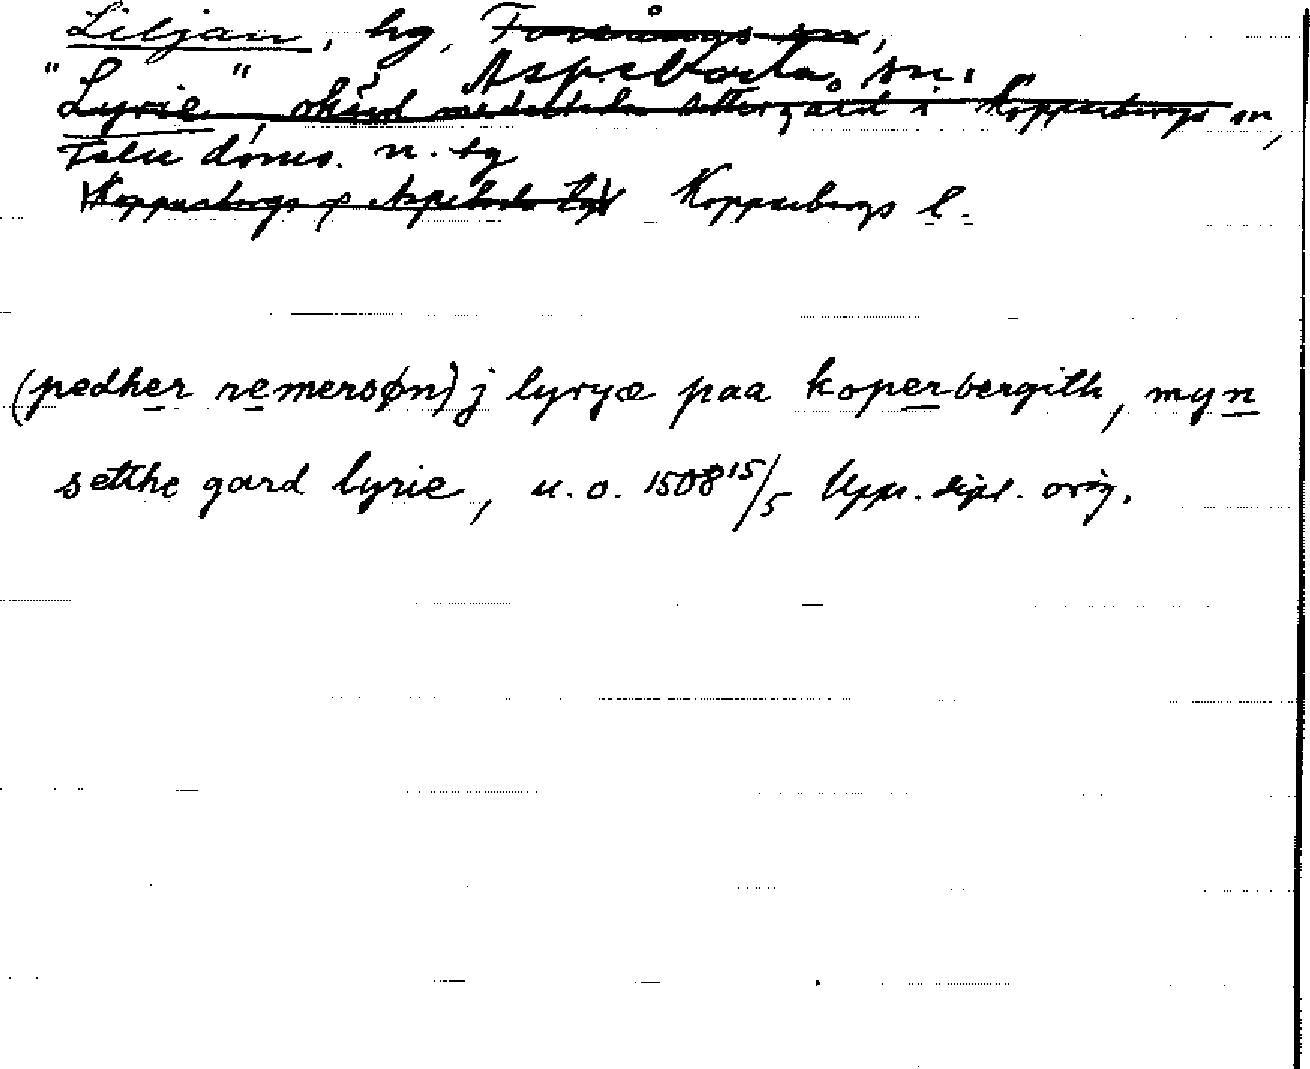 Liljan, hg, Torsångs sn,
Aspeboda sn.
"Lyrie", okänd medeltida sättergård i Kopparbergs sn,
Falu doms. n. tg
Kopparbergs o Aspeboda tg Kopparbergs l.
(pedher remersøn) j lyryæ paa koperbergith, myn
setthe gard lyrie, u. o. 1508 15/5 Upps. dipl. orig.